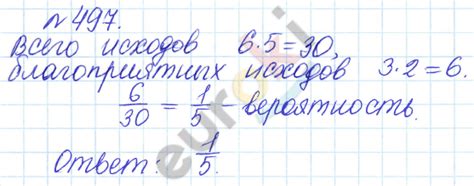 №497.
Всего исходов 6·5=30,
благоприятных исходов 3·2=6.
6/30 = 1/5 – вероятность.
Ответ: 1/5.
euroki